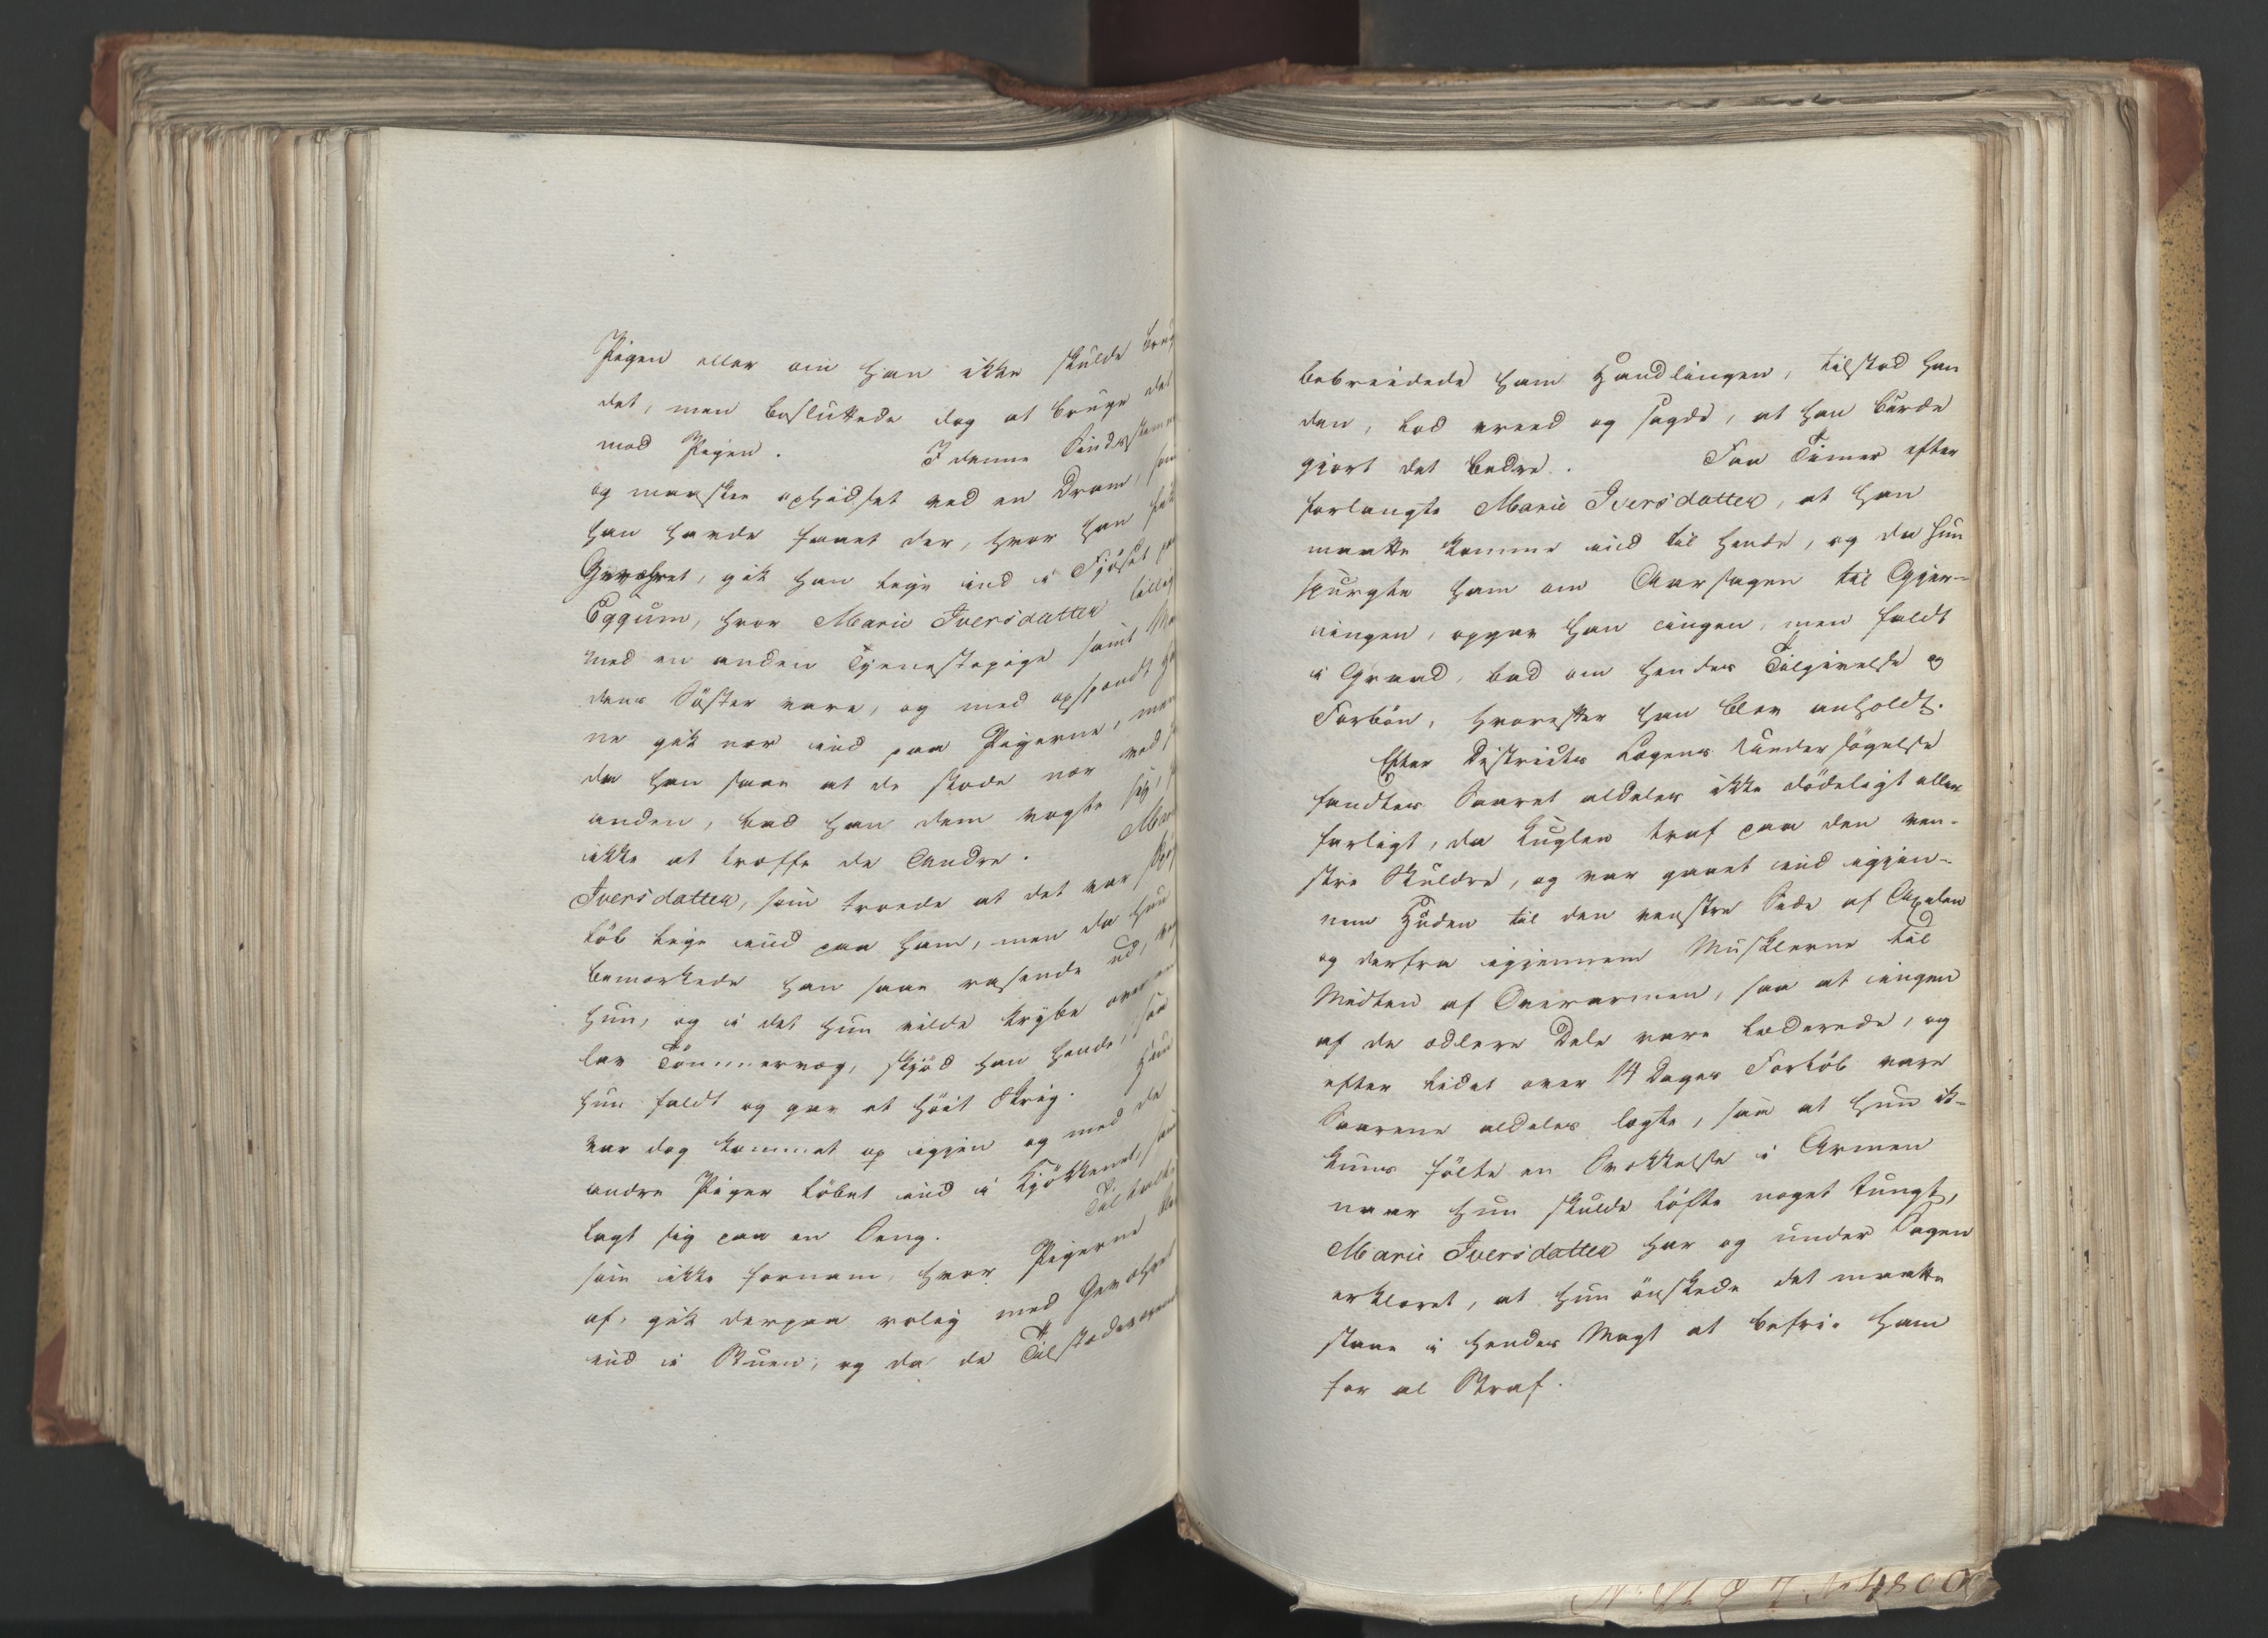 Pigen eller om han ikke skulde brug
det, men besluttede dog at bruge det
mod Pigen. I denne Sindsstemn
og maaskee ophidset ved en Dram, som
han havde faaet der, hvor han fik
Geværet, gik han lige ind i Fjöset paa
Eggum, hvor Marie Iversdatter tillig
med en anden Tjenestepige samt Ma
dens Söster vare, og med opspændt Ha
ne gik nær ind paa Pigerne, men
da han saae at de stode nær ved h
anden, bad han dem vogte sig, f
ikke at træffe de Andre. Mar
Iversdatter, som troede at det var Spög
löb lige ind paa ham, men da hun
bemærkede han saae rasende ud, veg
hun, og i det hun vilde krybe over en
lav Tömmervæg, skjöd han hende, saa
hun faldt og gav et höit Skrig. Hun
var dog kommet op igjen og med de
andre Piger löbet ind i Kjökkenet, samt
lagt sig paa en Seng. Tiltalte
som ikke fornam, hvor Pigerne ble
af, gik derpaa rolig med Geværet
ind i Stuen, og da de Tilstedeværend
bebreidede ham Handlingen, tilstod han
den, lod vreed og sagde, at han burde
gjort det bedre. Faa Timer efter
forlangte Marie Iversdatter, at han
maatte komme ind til hende, og da hun
spurgte ham om Aarsagen til Gjer-
ningen, opgav han ingen, men faldt
i Graad, bad om hendes Tilgivelse og
Forbön, hvorefter han blev anholdt.
Efter Districts Lægens Undersögelse
fandtes Saaret aldeles ikke dödeligt eller
farligt, da Kuglen traf paa den ven-
stre Skuldre, og var gaaet ind igjen-
nem Huden til den venstre Side af Axelen
og derfra igjennem Musklerne til
Midten af Overarmen, saa at ingen
af de ædlere Dele vare læderede, og
efter lidet over 14 Dages Forlöb vare
Saarene aldeles lægte, saa at hun ik-
kuns fölte en Svækkelse i Armen
naar hun skulde löfte noget tungt,
Marie Iversdatter har og under Sagen
erklæret, at hun önskede det maatte
staae i hendes Magt at befrie ham
for al Straf.